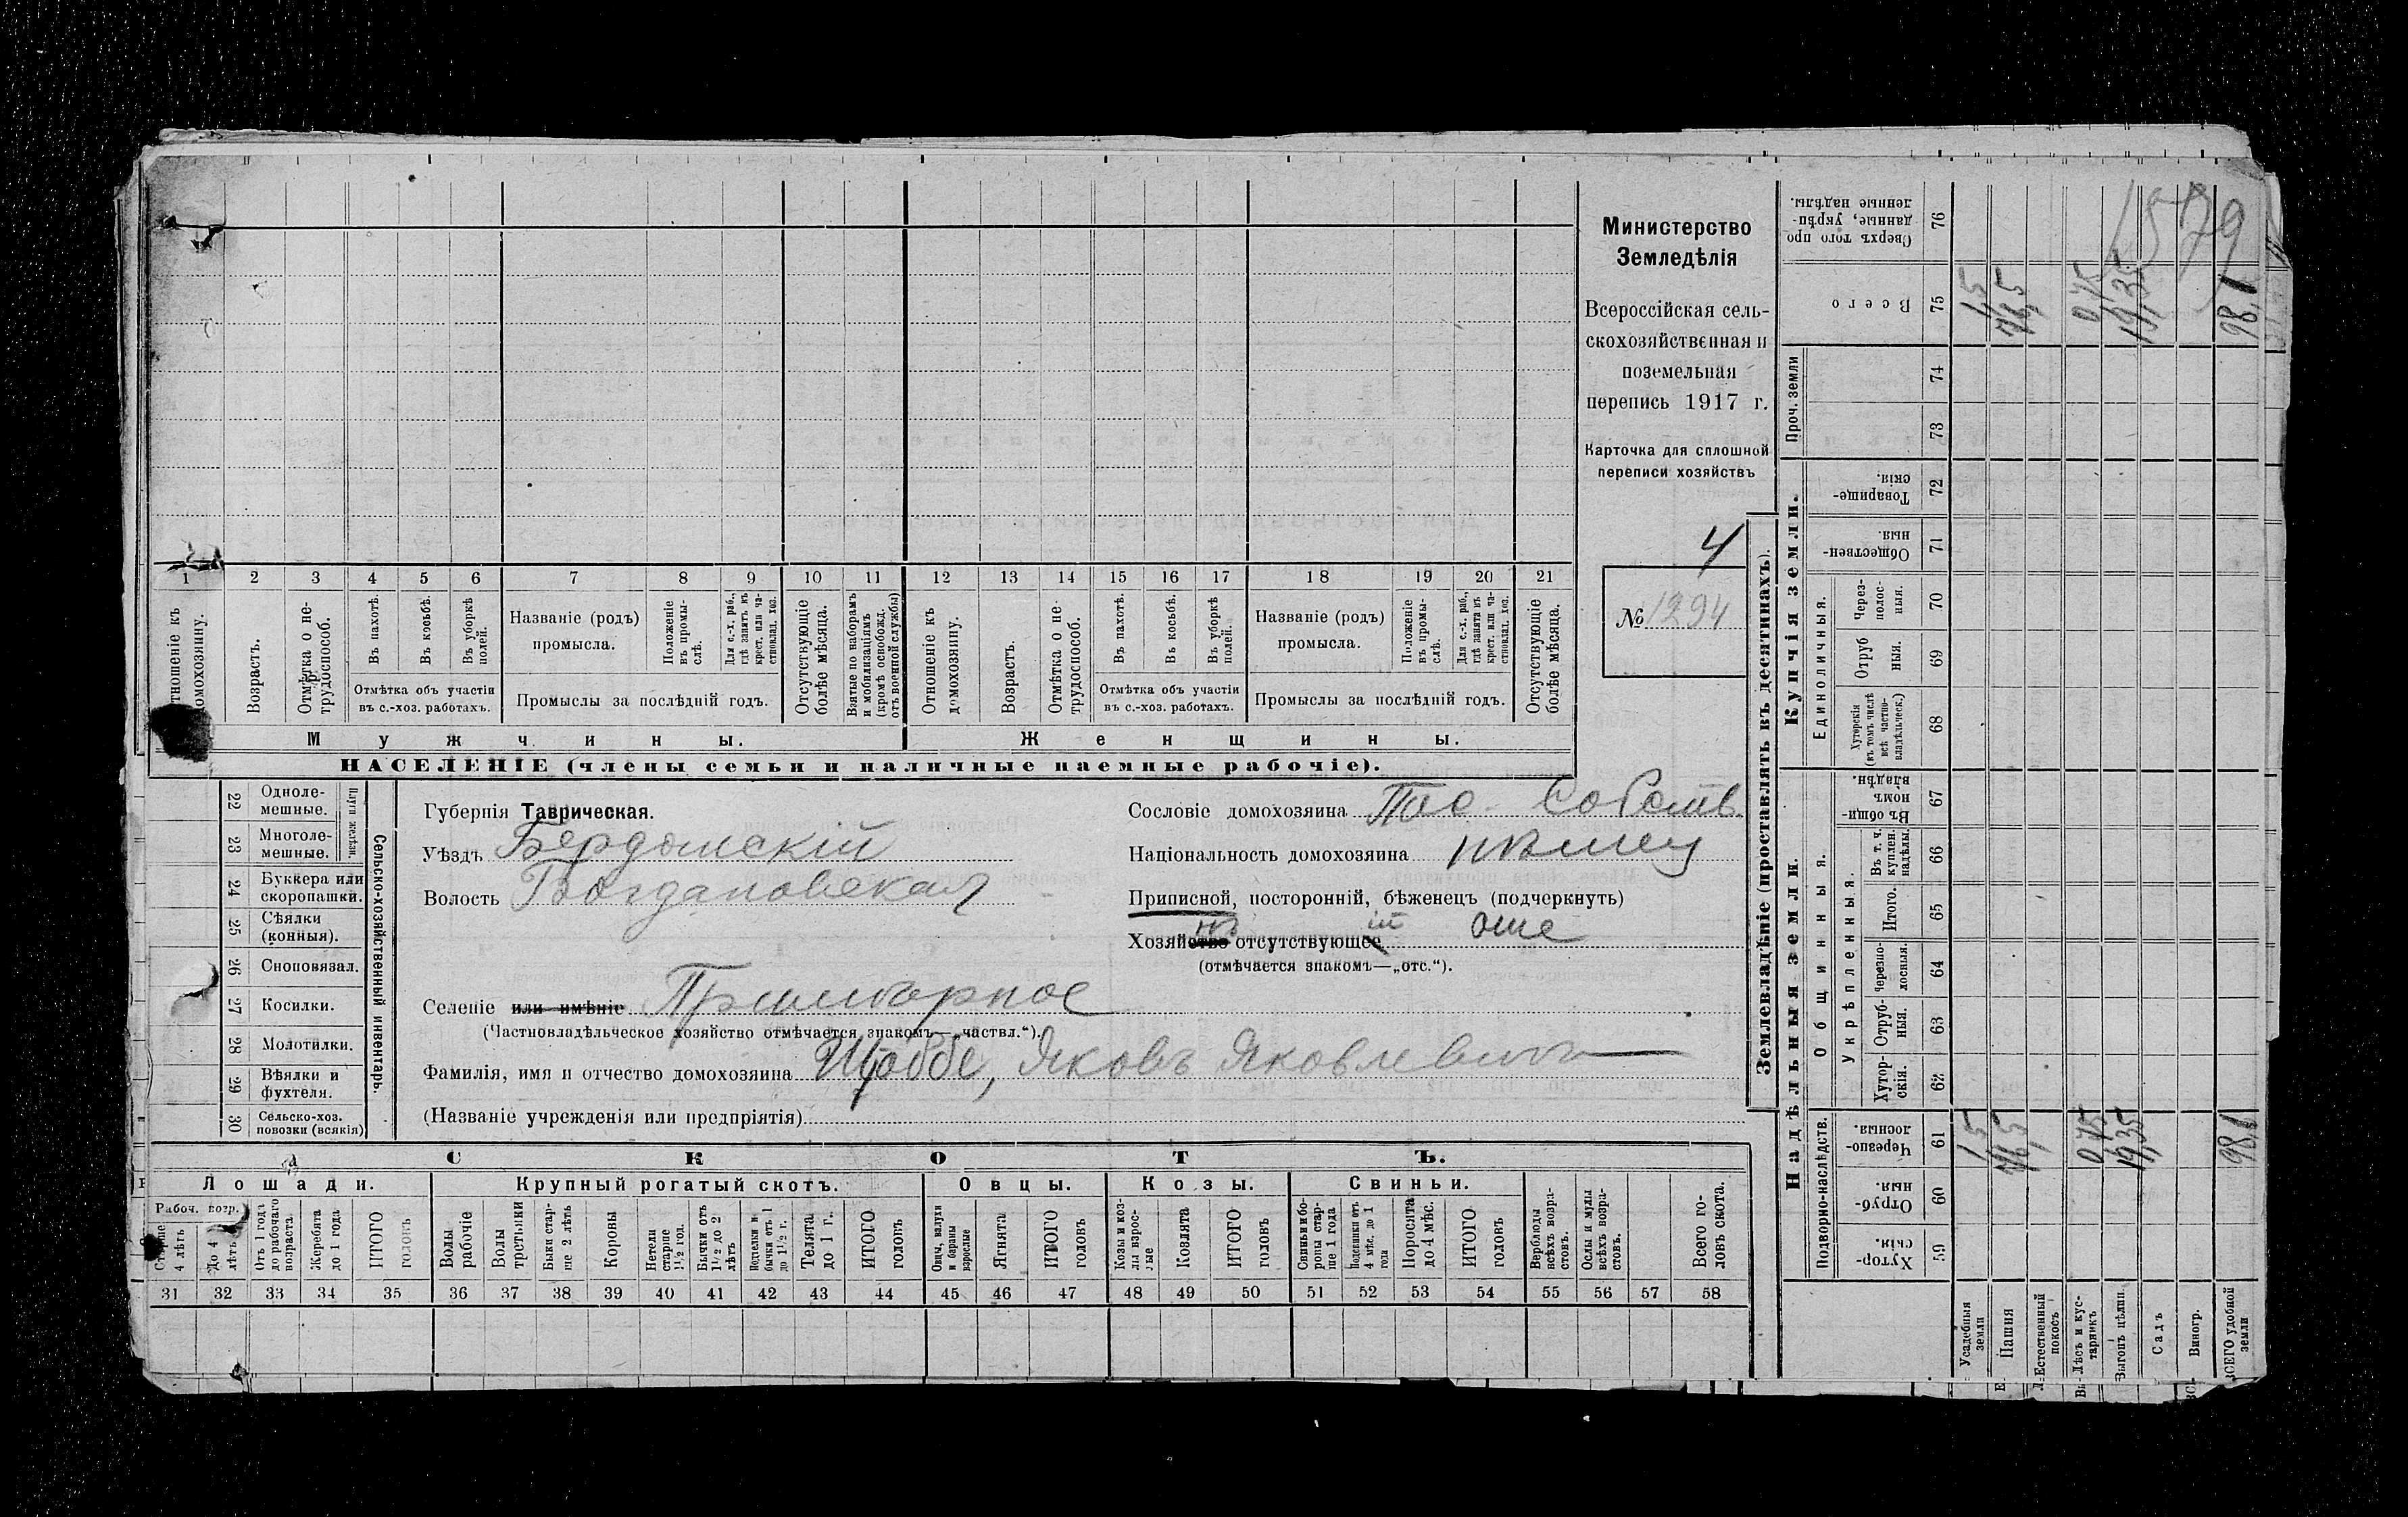 1 2 3 4 5 6 7 8 9 10 11 12 13 14 15 16 17 18 19 20 21
Отношеніе къ домохозяину.
Возрастъ.
Отмѣтка о не-
трудоспособ.
Въ пахотѣ.
Въ косьбѣ.
Въ уборкѣ
полей.
Отмѣтка объ участіи
въ с.-хоз. работахъ.
Названіе (родъ)
промысла.
Положеніе
въ промы-
слѣ.
Для с.-х. раб.,
гдѣ занятъ въ
крест. или ча-
стновлад. хоз.
Промыслы за послѣдній годъ.
Отсутствующіе
болѣе мѣсяца.
Взятые по наборамъ
и мобилизаціямъ
(кромѣ освобожд.
отъ военной службы)
Отношеніе къ
домохозяину.
Возрастъ.
Отмѣтка о не-
трудоспособ.
Въ пахотѣ.
Въ косьбѣ.
Въ уборкѣ
полей.
Отмѣтка объ участіи
въ с.-хоз. работахъ.
Названіе (родъ)
промысла.
Положеніе
въ промы-
слѣ.
Для с.-х. раб.,
гдѣ занята въ
крест. или ча-
стновлад. хоз.
Промыслы за послѣдній годъ.
Отсутствующіе
болѣе мѣсяца.
Мужчины. Женщины.
НАСЕЛЕНІЕ (члены семьи и наличные наемные рабочіе).
Министерство
Земледѣлія
Всероссійская сель-
скохозяйственная и
поземельная
перепись 1917 г.
Карточка для сплошной
переписи хозяйствъ
4
№ 1294
22 Одноле-
мешные.
23 Многоле-
мешные.
Плуги желѣзн.
24 Буккера или
скоропашки.
25 Сѣялки
(конныя).
26 Сноповязал.
27 Косилки.
28 Молотилки.
29 Вѣялки и
фухтеля.
30 Сельско-хоз.
повозки (всякія)
Сельско-хозяйственный инвентарь.
Губернія Таврическая.
Уѣздъ Бердянскій
Волость Богдановская
Селеніе или имѣніе Пришибское
(Частновладѣльческое хозяйство отмѣчается знакомъ—„частвл.“).
Фамилія, имя и отчество домохозяина Штоббе, Яковъ Яковлевичъ
(Названіе учрежденія или предпріятія)
Сословіе домохозяина Пос. Собств.
Національность домохозяина нѣмец
Приписной, посторонній, бѣженецъ (подчеркнуть)
Хозяйство отсутствующее отс
(отмѣчается знакомъ—„отс.“).
СКОТЪ.
Лошади. Крупный рогатый скотъ. Овцы. Козы. Свиньи.
Рабоч. возр.
Старше
4 лѣтъ
До 4
лѣтъ
Отъ 1 года
до рабочаго
возраста
Жеребята
до 1 года
ИТОГО
головъ
Волы
рабочіе
Волы
третьяки
Быки стар-
ше 2 лѣтъ
Коровы
Нетели
старше
1½ год.
Бычки отъ
1½ до 2
лѣтъ
Подтелки и
бычки отъ 1
до 1½ г.
Телята
до 1 г.
ИТОГО
головъ
Овцы, валухи
и бараны
взрослые
Ягнята
ИТОГО
головъ
Козы и коз-
лы взрос-
лые
Козлята
ИТОГО
головъ
Свиньи и бо-
ровы стар-
ше 1 года
Подсвинки отъ
4 мѣс. до 1
года
Поросята
до 4 мѣс.
ИТОГО
головъ
Верблюды
всѣхъ возра-
стовъ.
Ослы и мулы
всѣхъ возра-
стовъ.
Всего го-
ловъ скота.
31 32 33 34 35 36 37 38 39 40 41 42 43 44 45 46 47 48 49 50 51 52 53 54 55 56 57 58
Землевладѣніе (проставлять въ десятинахъ).
Надѣльныя земли. Купчія земли. Проч. земли
Подворно-наслѣдств. Общинныя. Единоличныя.
Укрѣпленныя.
Хутор-
скія. 59
Отруб-
ныя. 60
Черезпо-
лосныя. 61
Хутор-
скія. 62
Отруб-
ныя. 63
Черезпо-
лосныя. 64
Итого. 65
Въ т. ч.
куплен.
надѣлы. 66
Въ общи-
номъ
владѣн. 67
Хуторскія
(въ томъ числѣ
всѣ частно-
владѣльческ.) 68
Отруб
ныя. 69
Через-
полос-
ныя. 70
Обществен-
ныя. 71
Товарище-
скія. 72
73
74
Всего 75
Сверхъ того про
данные, укрѣп-
ленные надѣлы. 76
Усадебныя
земли 1,5 1,5
Пашня 76,5 76,5
Естественный
покосъ
Лѣсъ и кус-
тарникъ 0,75 0,75
Выгонъ цѣлин. 19,35 19,35
Садъ
Виногр.
ВСЕГО удобной
земли 98,1 98,1
1579